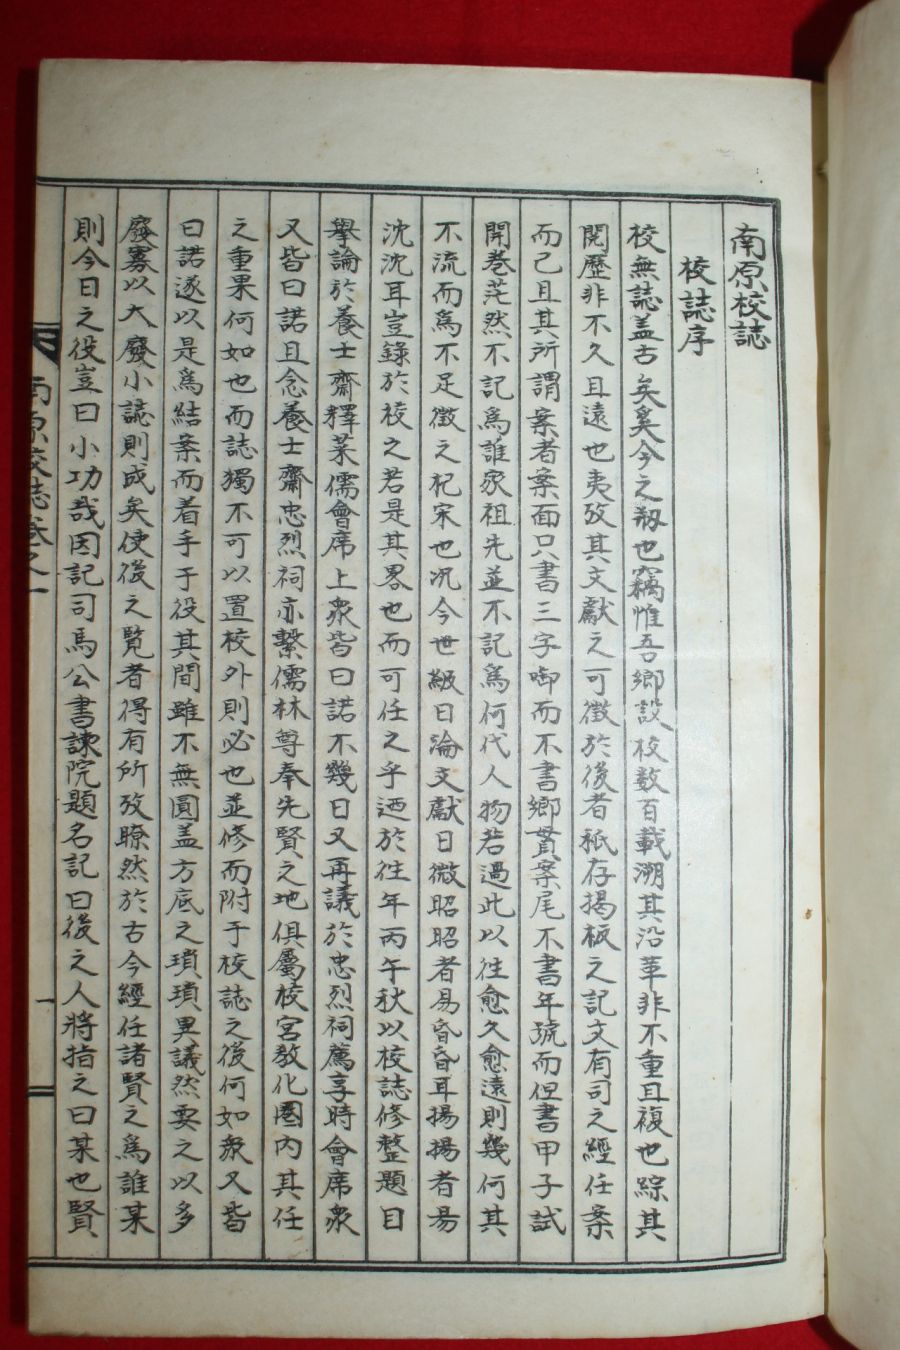 南原校誌
校誌序
校無誌盖古矣奚今之剏也竊惟吾鄉設校数百載溯其沿革非不重且複也綜其
閱歷非不久且遠也夷攷其文獻之可徵於後者祇存揭板之記文有司之經任案
而已且其所謂案者案面只書三字啣而不書鄉貫案尾不書年號而但書甲子試
開卷茫然不記爲誰家祖先並不記爲何代人物若過此以往愈久愈遠則幾何其
不流而爲不足徵之杞宋也况今世級日淪文獻日微昭昭者易昏昏耳揚揚者易
沈沈耳豈錄於校之若是其畧也而可任之乎迺於往年丙午秋以校誌修整題目
擧論於養士齋釋菜儒會席上衆皆曰諾不幾日又再議於忠烈祠薦享時會席衆
又皆曰諾且念養士齋忠烈祠亦繫儒林尊奉先賢之地俱屬校宮敎化圈內其任
之重果何如也而誌獨不可以置校外則必也並修而附于校誌之後何如衆又皆
曰諾遂以是爲結案而着手于役其間雖不無圓盖方底之瑣瑣異議然要之以多
廢寡以大廢小誌則成矣使後之覧者得有所攷瞭然於古今經任諸賢之爲誰某
則今日之役豈曰小功哉因記司馬公書諫院題名記曰後之人將指之曰某也賢
南原校誌卷之一
一